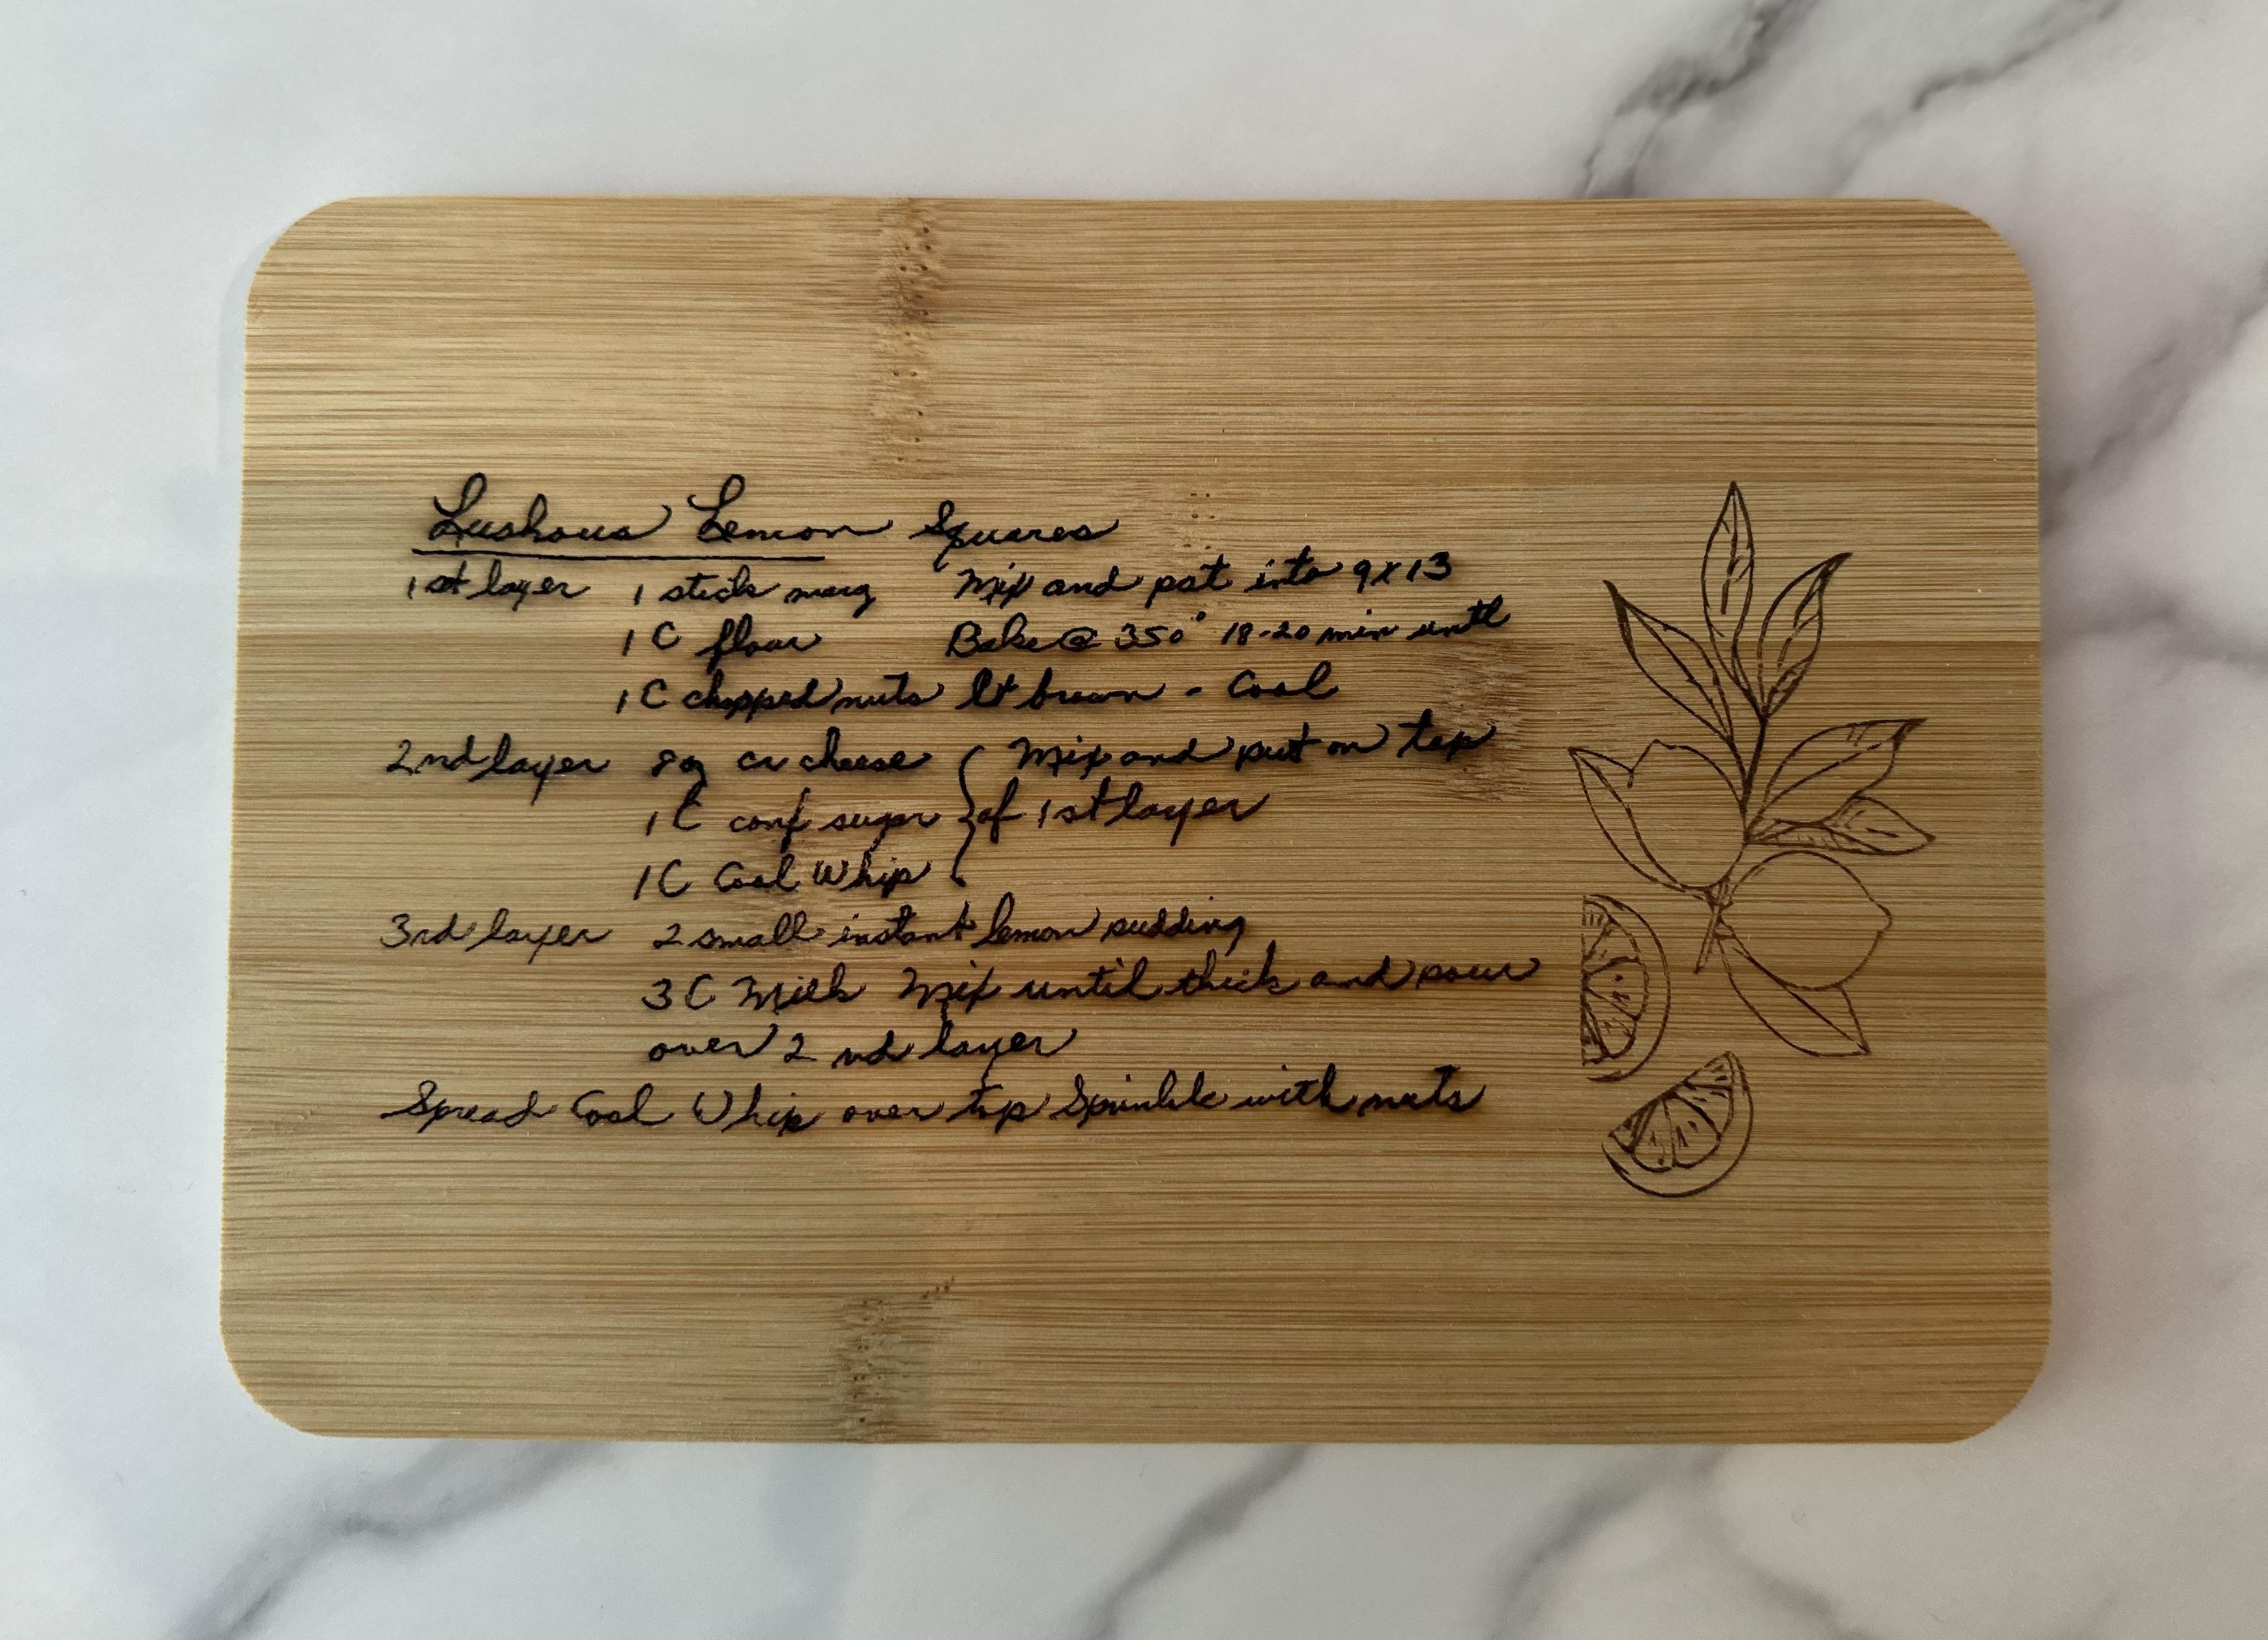 Lushous Lemon Squares
1st layer 1 stick marg Mix and pat into 9x13
1 C flour Bake @ 350° 18-20 min until
1 C chopped nuts lt brown - Cool
2nd layer 8 oz cr cheese { Mix and put on top
1 C conf sugar of 1st layer
1 C Cool Whip
3rd layer 2 small instant lemon pudding
3 C Milk Mix until thick and pour
over 2 nd layer
Spread Cool Whip over top Sprinkle with nuts